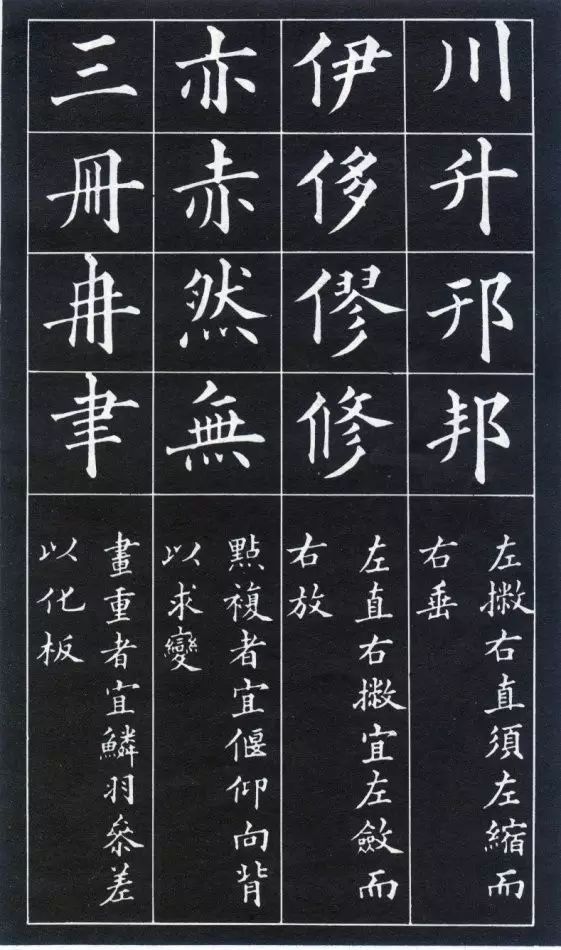 川升邘邦
左撇右直須左縮而
右垂
伊侈僇修
左直右撇宜左斂而
右放
亦赤然無
點複者宜偃仰向背
以求變
三冊冉聿
畫重者宜鱗羽參差
以化板